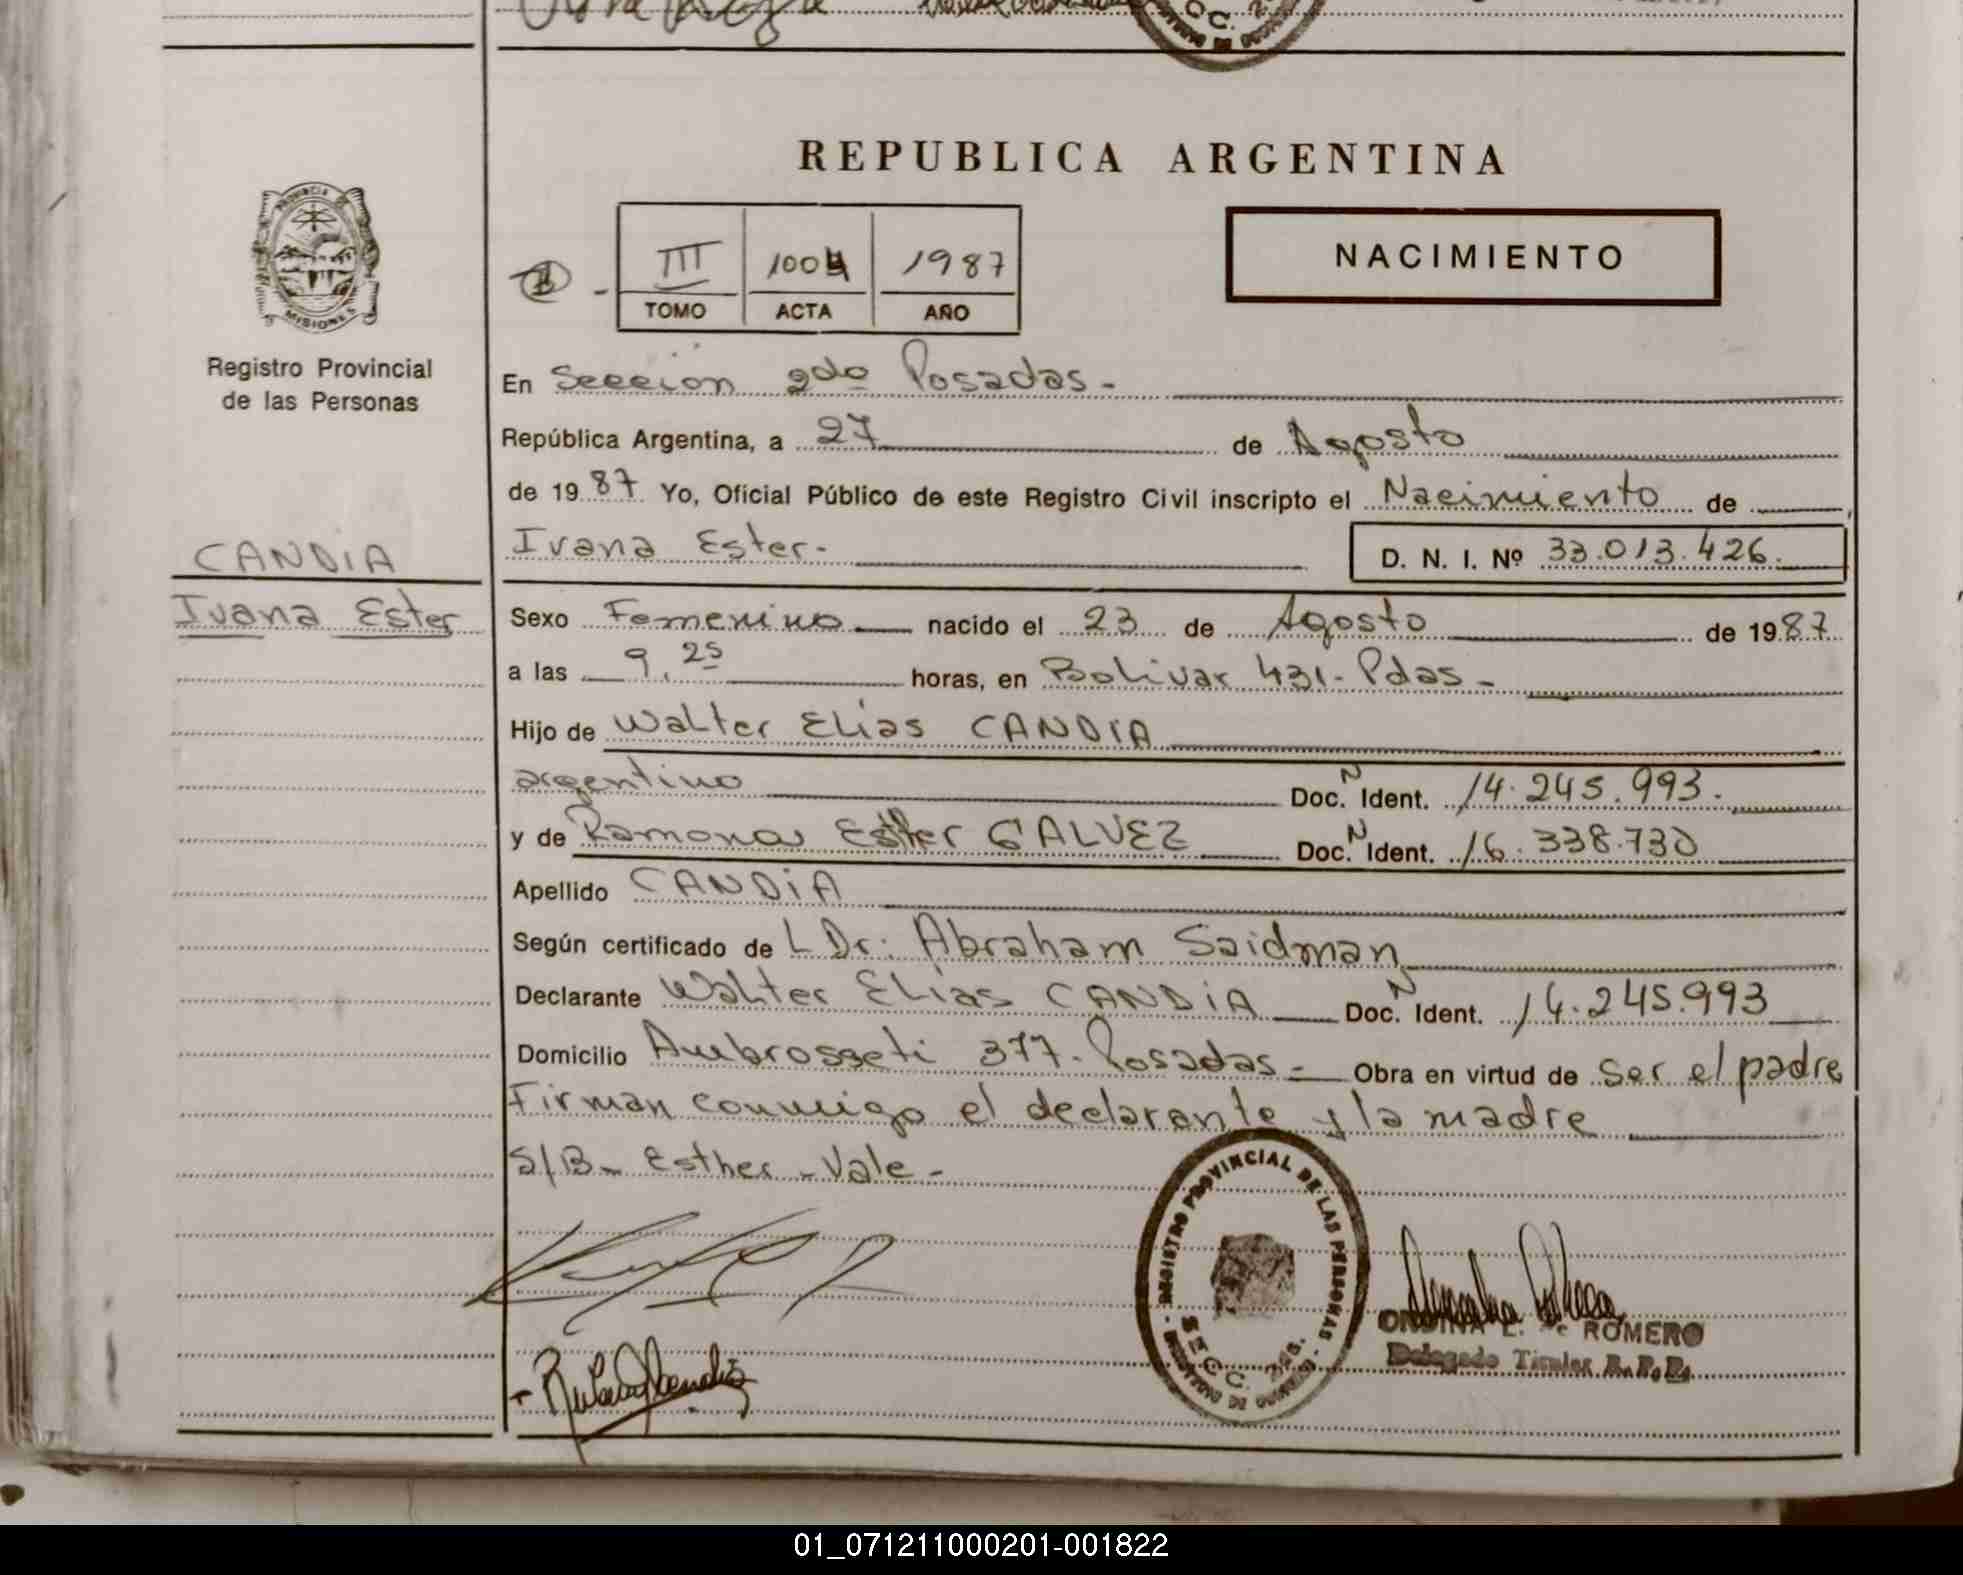 REPUBLICA ARGENTINA
PROVINCIA DE
MISIONES
Registro Provincial
de las Personas
III 1004 1987
TOMO ACTA AÑO
NACIMIENTO
En Seccion 2do Posadas-
República Argentina, a 27 de Agosto
de 1987 Yo, Oficial Público de este Registro Civil inscripto el Nacimiento de
Ivana Ester-
D. N. I. Nº 33.013.426.
CANDIA
Ivana Ester
Sexo Femenino nacido el 23 de Agosto de 1987
a las 9,25 horas, en Bolivar 431- Pdas-
Hijo de Walter Elias CANDIA
argentino Doc. N Ident. 14.245.993.
y de Ramona Esther GALVEZ Doc. N Ident. 16.338.730
Apellido CANDiA
Según certificado de L Dr: Abraham Saidman
Declarante Walter Elias CANDiA Doc. N Ident. 14.245.993
Domicilio Ambrosseti 377- Posadas- Obra en virtud de ser el padre
Firman conmigo el declarante y la madre
S/B- Esther - Vale-
REGISTRO PROVINCIAL DE LAS PERSONAS
SECC. 2da.
ROMERO
Delegado Titular R.P.P.
01_071211000201-001822